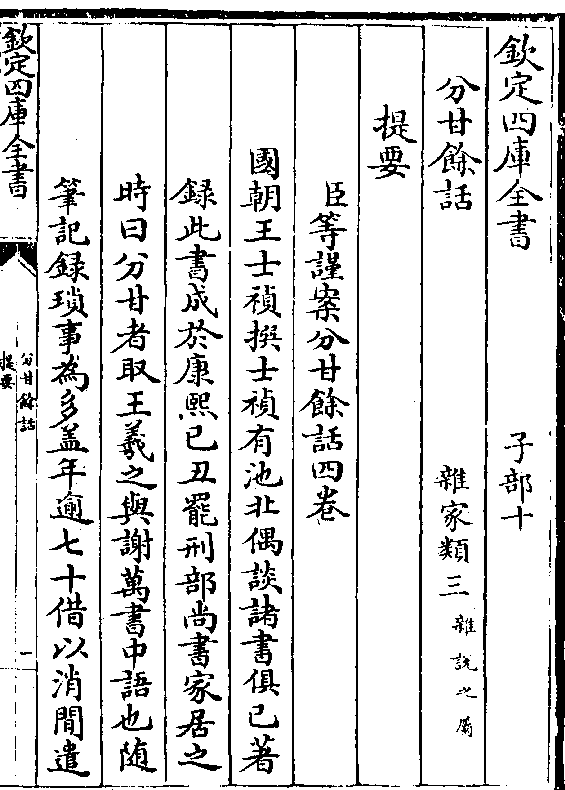 欽定四庫全書 子部十
分甘餘話 雜家類三 雜説之屬
提要
臣等謹案分甘餘話四卷
國朝王士禎撰士禎有池北偶談諸書俱已著
録此書成於康熙已丑罷刑部尚書家居之
時曰分甘者取王羲之與謝萬書中語也随
筆記録瑣事為多盖年逾七十借以消閒遣
欽定四庫全書
分甘餘話
提要
一